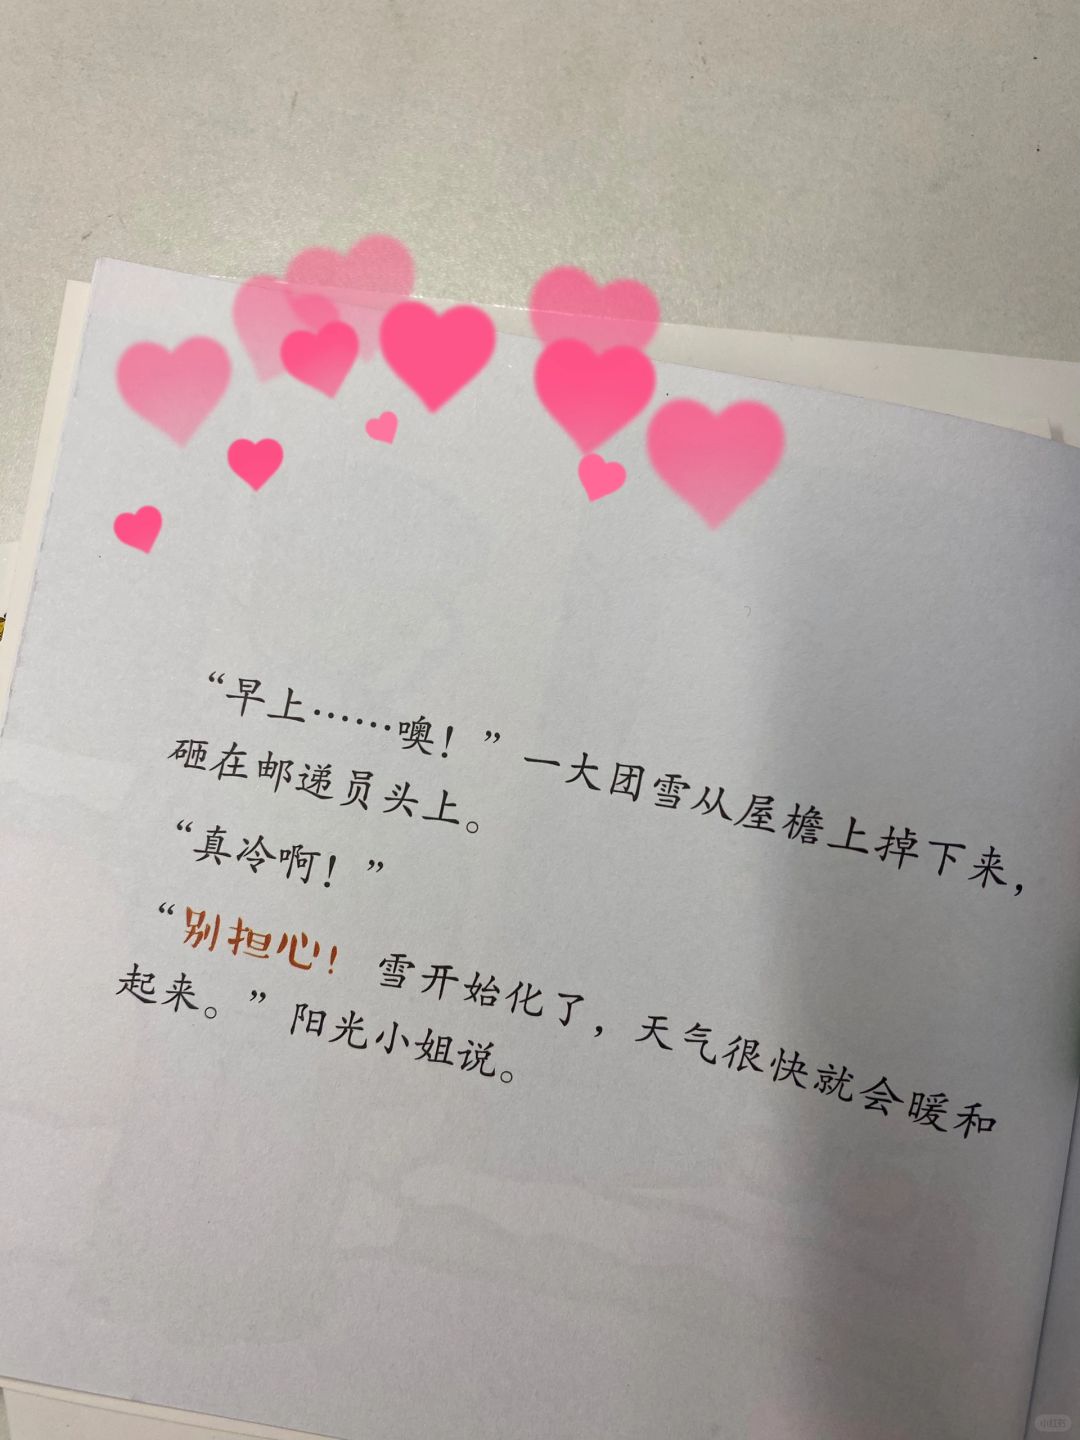 “早上……噢！”一大团雪从屋檐上掉下来，
砸在邮递员头上。
“真冷啊！”
“别担心！雪开始化了，天气很快就会暖和
起来。”阳光小姐说。
小红书